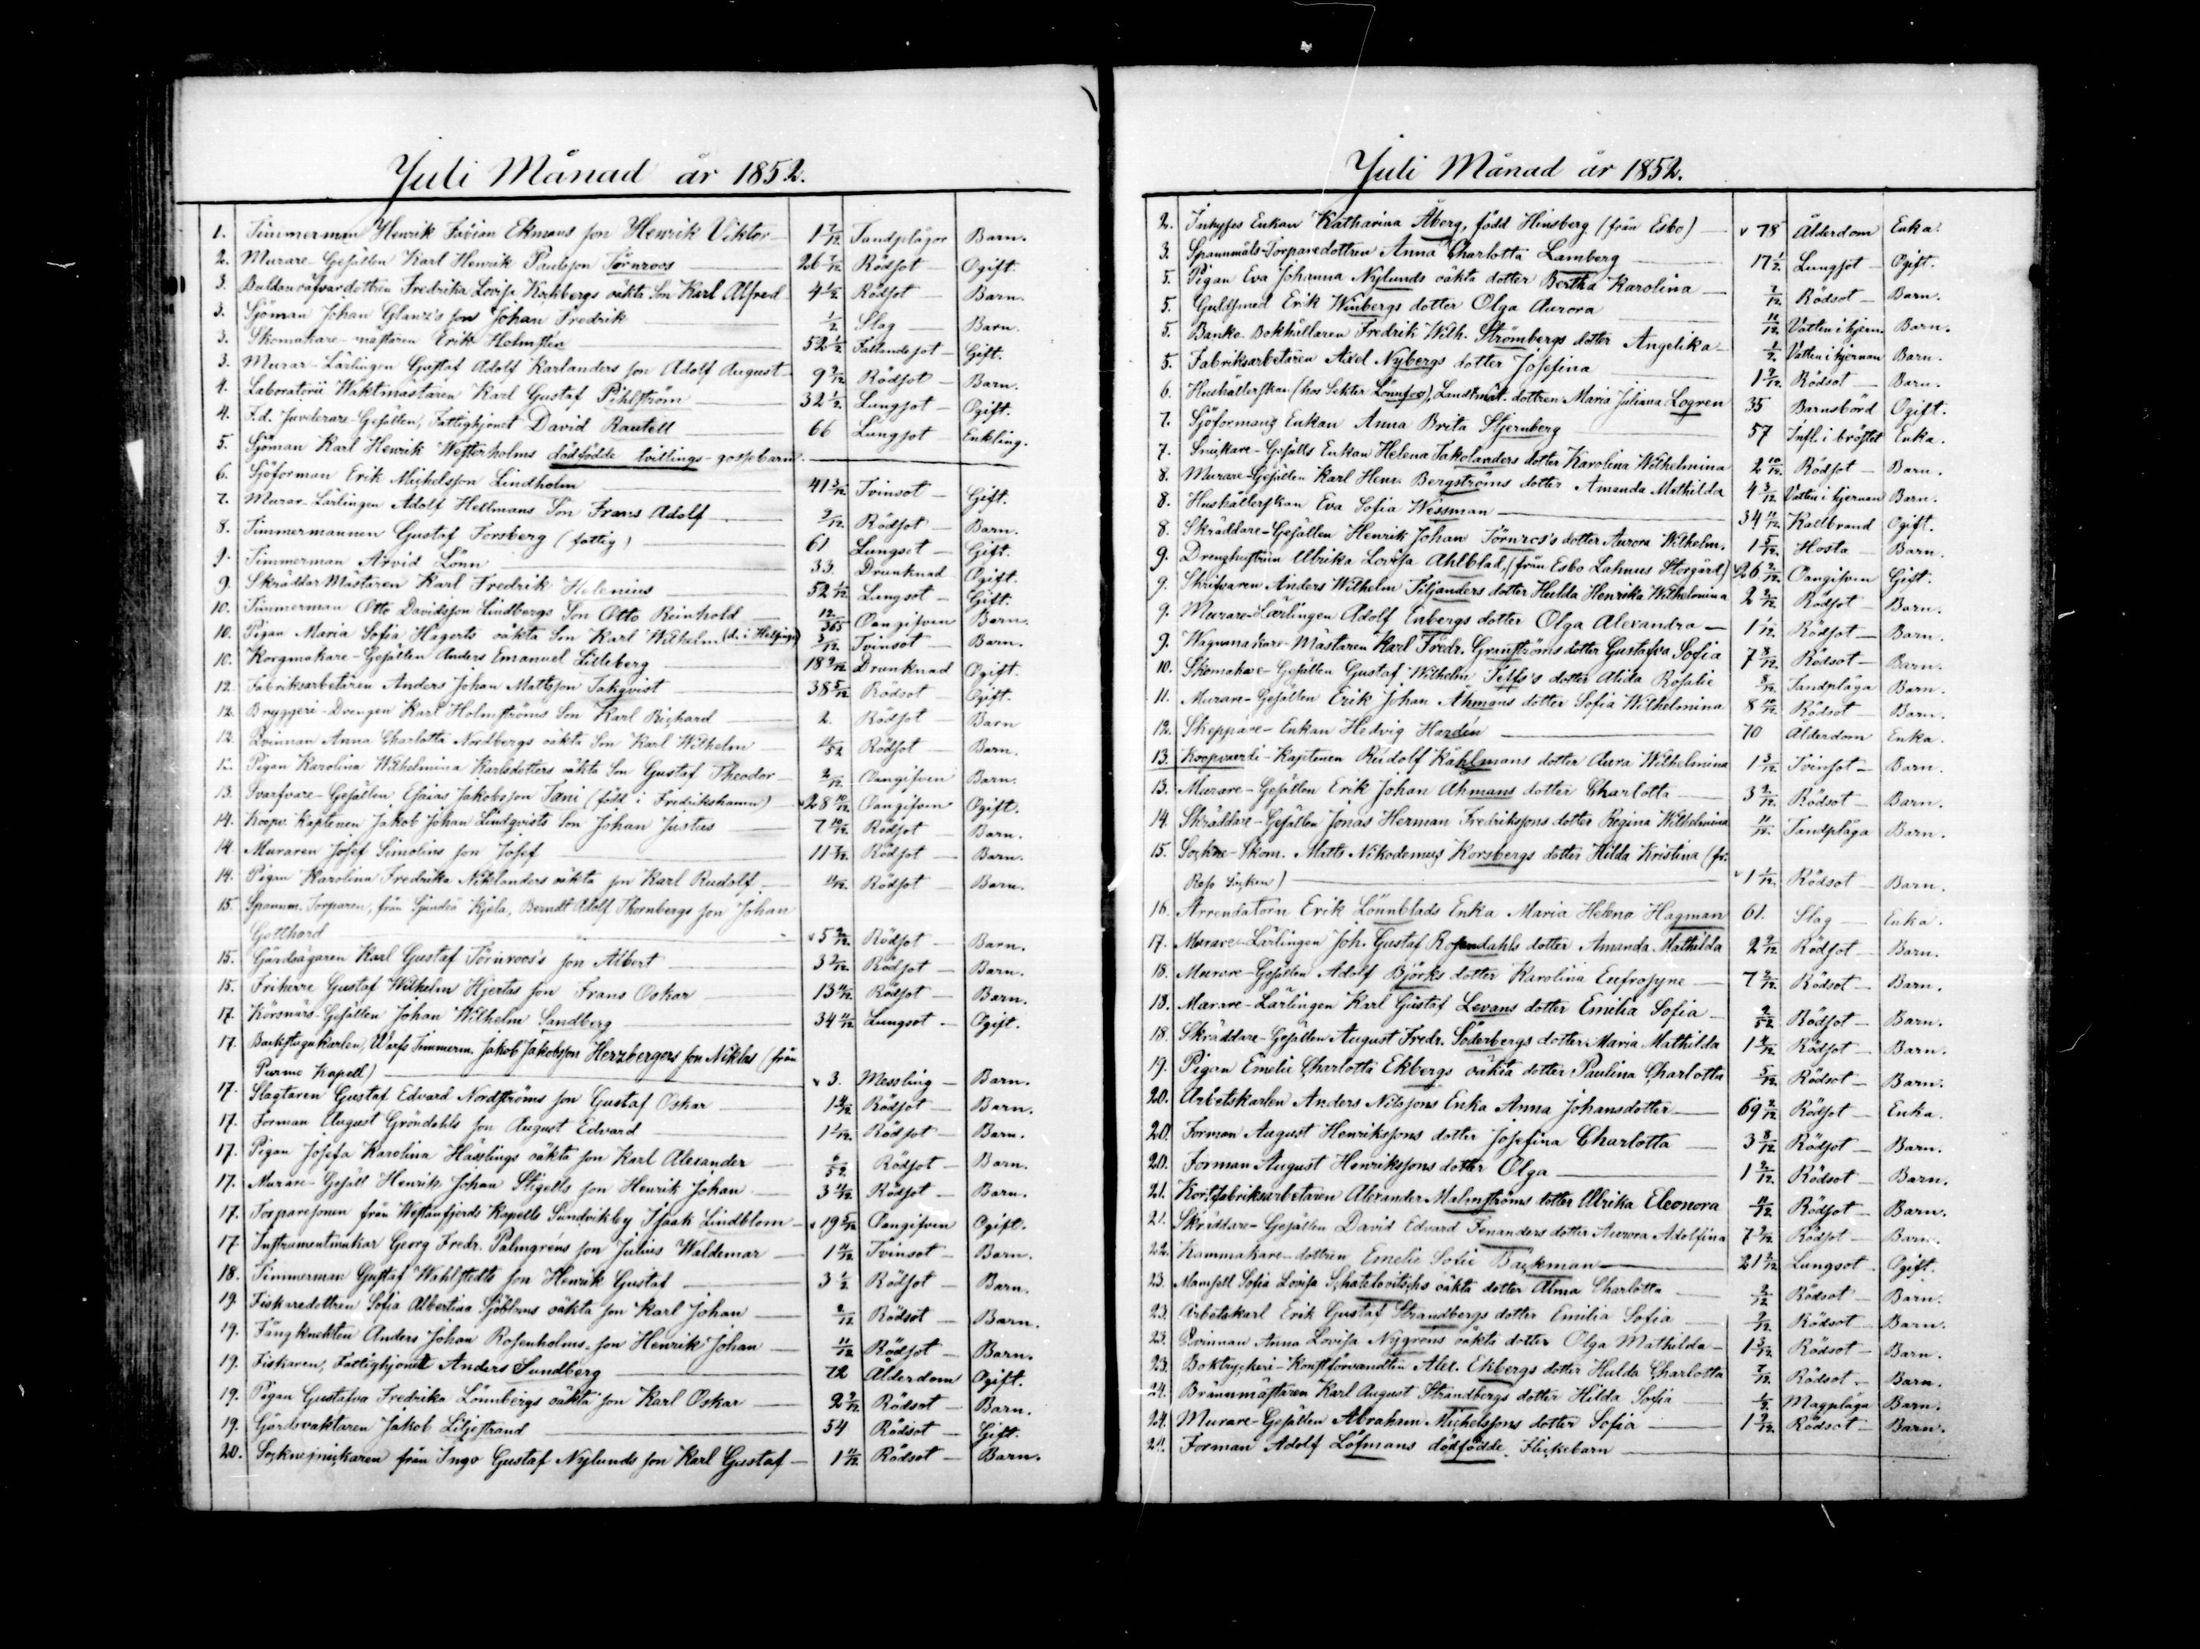 Juli Månad år 1852.
1. Timmerman Henrik Fabian Ekmans son Henrik Viktor — 1 7/12 Tandplågor Barn.
2. Murare-Gesällen Karl Henrik Paulsson Törnroos — 26 7/12 Rödsot — Ogift.
3. dottren Fredrika Lovisa oäkta Son Karl Alfred 4 Rödsot — Barn.
3. Sjöman Johan Glanz's son Johan Fredrik — 1/2 Slag — Barn.
3. Skomakare-mästaren Erik Holmsten — 52 1/2 Fallandesot — Gift.
3. Murar-Lärlingen Gustaf Adolf Karlanders son Adolf August — 9 Rödsot — Barn.
4. Laboratorii Waktmästaren Karl Gustaf Pihlström — 32 1/2 Lungsot — Ogift.
4. F.d. Juvelerare-Gesällen, Fattighjonet David Rautell — 66 Lungsot — Enkling.
5. Sjöman Karl Henrik Westerholms dödfödde tvillings-gossebarn. —
6. Sjöforman Erik Michelsson Lindholm — 41 Tvinsot — Gift.
7. Murar-Lärlingen Adolf Hellmans Son Frans Adolf — Rödsot — Barn.
8. Timmermannen Gustaf Forsberg (fattig) — 61 Lungsot — Gift.
9. Timmerman Arvid Lönn — 33. Drunknad Ogift.
9. Skräddar Mästaren Karl Fredrik Helenius — 52 Lungsot — Gift.
10. Timmerman Otto Davidsson Lindbergs Son Otto Reinhold — 12/365 Oangifven Barn.
10. Pigan Maria Sofia Hagerts oäkta Son Karl Wilhelm 3/12 Tvinsot — Barn.
10. Korgmakare-Gesällen Anders Emanuel Lilleberg — 18 Drunknad Ogift.
12. Fabriksarbetaren Anders Johan Mattsson Takqvist — 38 5/12 Rödsot — Ogift.
12. Bryggeri-Drengen Karl Holmströms Son Karl Richard — 2. Rödsot — Barn
12. Qvinnan Anna Charlotta Nordbergs oäkta Son Karl Wilhelm — Rödsot — Barn.
12. Pigan Karolina Wilhelmina Karlsdotters oäkta Son Gustaf Theodor — Oangifven Barn.
13. Svarfvare-Gesällen Esaias Jakobsson Tani (född i Fredrikshamn) — v 28 10/12 Oangifven Ogift.
14. Koopv. Kaptenen Jakob Johan Lindqvists Son Johan Justus — 7 10/12 Rödsot — Barn.
14. Muraren Josef Simolins son Josef — 11 Rödsot — Barn.
14. Pigan Karolina Fredrika Niklanders oäkta son Karl Rudolf — Rödsot — Barn.
15. Spannm. Torparen, från Sjundeå Kjela, Berndt Adolf Thornbergs son Johan
Gotthard — v 5 Rödsot — Barn.
15. Gårdsägaren Karl Gustaf Törnroos's son Albert — 3 Rödsot — Barn.
15. Friherre Gustaf Wilhelm Hjertas son Frans Oskar — 13 Rödsot — Barn.
17. Körsnärs-Gesällen Johan Wilhelm Sandberg — 34 Lungsot — Ogift.
17. Timmerm. Jakob Jakobsson Herzbergers son Niklas (från
Purmo Kapell) — v 3. Messling — Barn.
17. Slagtaren Gustaf Edvard Nordströms son Gustaf Oskar — 1 Rödsot — Barn.
17. Forman August Gröndahls son August Edvard — 1 1/12 Rödsot — Barn.
17. Pigan Josefa Karolina Hasslings oäkta son Karl Alexander — 6/52 Rödsot — Barn.
17. Murare-Gesäll Henrik Johan Stigells son Henrik Johan — 3 Rödsot — Barn.
17. Torparesonen från Westanfjerds Kapells Sundvikby Isaak Lindblom — v 19 5/12 Oangifven Ogift.
17. Instrumentmakar Georg Fredr. Palmgréns son Julius Waldemar — 1 Tvinsot — Barn.
18. Timmerman Gustaf Wahlstedts son Henrik Gustaf — 3 1/2 Rödsot — Barn.
19. Fiskaredottren Sofia Albertina Sjöbloms oäkta son Karl Johan — Rödsot — Barn.
19. Fångknekten Anders Johan Rosenholms son Henrik Johan — 11/12 Rödsot — Barn.
19. Fiskaren, Fattighjonet Anders Sundberg — 72 Ålderdom Ogift.
19. Pigan Gustafva Fredrika Lönnbergs oäkta son Karl Oskar — 2 Rödsot — Barn.
19. Gårdsvaktaren Jakob Liljestrand — 54 Rödsot — Gift.
20. Socknesnickaren från Ingo Gustaf Nylunds son Karl Gustaf — 1 Rödsot — Barn.
Juli Månad år 1852.
2. Inhyses Enkan Katharina Åberg, född Hinsberg (från Esbo) — v 78 Ålderdom Enka.
3. Spannmåls-Torparedottren Anna Charlotta Lamberg — 17 1/2 Lungsot — Ogift.
5. Pigan Eva Johanna Nylunds oäkta dotter Bertha Karolina — Rödsot — Barn.
5. Guldsmed Erik Winbergs dotter Olga Aurora — Vatten i hjern. Barn.
5. Banko Bokhållaren Fredrik Wilh. Strömbergs dotter Angelika — 1/2 Vatten i hjernan Barn.
5. Fabriksarbetaren Axel Nybergs dotter Josefina — 1 Rödsot — Barn.
6. Hushållerskan (hos Lönnfors), Landtmät. dottren Maria Juliana Logren 35 Barnsbörd Ogift.
7. Sjöformans Enkan Anna Brita Stjernberg — 57 Infl. i bröstet Enka.
7. Snickare-Gesälls Enkan Helena Jakolanders dotter Karolina Wilhelmina 2 10/12 Rödsot — Barn.
8. Murare-Gesällen Karl Henr. Bergströms dotter Amanda Mathilda 4 3/12 Vatten i hjernan Barn.
8. Hushållerskan Eva Sofia Wessman — 34 11/12 Kallbrand Ogift.
8. Skräddare-Gesällen Henrik Johan Törnroos's dotter Aurora Wilhelm. 1 5/12 Hosta — Barn.
9. Drenghustrun Ulrika Lovisa Ahlblad, (från Esbo Lahnus Storgård) v 26 Oangifven Gift.
9. Skrifvaren Anders Wilhelm Siljanders dotter Hulda Henrika Wilhelmina 2 Rödsot — Barn.
9. Murare-Lärlingen Adolf Enbergs dotter Olga Alexandra — 1 1/12 Rödsot — Barn.
9. Wagnmakare-Mästaren Karl Fredr. Granströms dotter Gustafva Sofia 7 8/12 Rödsot — Barn.
10. Skomakare-Gesällen Gustaf Wilhelm dotter Alida Rosalie 8/12 Tandplåga Barn.
11. Murare-Gesällen Erik Johan Åhmans dotter Sofia Wilhelmina 8 10/12 Rödsot — Barn.
12. Skeppare-Enkan Hedvig Hardén — 70 Ålderdom Enka.
13. Koopvaerdi-Kaptenen Rudolf Kåhlmans dotter Aura Wilhelmina 1 3/12 Tvinsot — Barn.
13. Murare-Gesällen Erik Johan Åhmans dotter Charlotta — 3 Rödsot — Barn.
14. Skräddare-Gesällen Jonas Herman Fredrikssons dotter Regina Wilhelmina 11/12 Tandplåga Barn.
15. Sockne-Skom. Matts Nikodemus Korsbergs dotter Hilda Kristina (fr.
Reso Socken) — v 1 1/12 Rödsot — Barn.
16. Arrendatorn Erik Lönnblads Enka Maria Helena Hagman 61. Slag — Enka.
17. Murare-Lärlingen Joh. Gustaf Rosendahls dotter Amanda Mathilda 2 Rödsot — Barn.
18. Murare-Gesällen Adolf Björks dotter Karolina Eufrosyne — 7 Rödsot — Barn.
18. Murare-Lärlingen Karl Gustaf Levans dotter Emilia Sofia — Rödsot — Barn.
18. Skräddare-Gesällen August Fredr. Söderbergs dotter Maria Mathilda 1 Rödsot — Barn.
19. Pigan Emelie Charlotta Ekbergs oäkta dotter Paulina Charlotta 5/12 Rödsot — Barn.
20. Arbetskarlen Anders Nilssons Enka Anna Johansdotter — 69 Rödsot — Enka.
20. Forman August Henrikssons dotter Josefina Charlotta — 3 8/12 Rödsot — Barn.
20. Forman August Henrikssons dotter Olga — 1 Rödsot — Barn.
21. Kort-fabriksarbetaren Alexander Malmströms dotter Ulrika Eleonora 11/12 Rödsot — Barn.
21. Skräddare-Gesällen David Edvard Fenanders dotter Aurora Adolfina 7 Rödsot — Barn.
22. Kammakare-dottren Emelie Sofie Backman — 21 Lungsot — Ogift.
23. Mamsell Sofia Lovisa oäkta dotter Alma Charlotta — Rödsot — Barn.
23. Arbetskarl Erik Gustaf Strandbergs dotter Emilia Sofia — 9/12 Rödsot — Barn.
23. Qvinnan Anna Lovisa Nygrens oäkta dotter Olga Mathilda — 1 3/12 Rödsot — Barn.
23. Boktryckeri-Konstförvandten Alex. Ekbergs dotter Hulda Charlotta 7/12 Rödsot — Barn.
24. Brännmästaren Karl August Strandbergs dotter Hilda Sofia — 1/2 Magplåga Barn.
24. Murare-Gesällen Abraham Michelssons dotter Sofia — 1 Rödsot — Barn.
24. Forman Adolf Löfmans dödfödde Flickebarn —